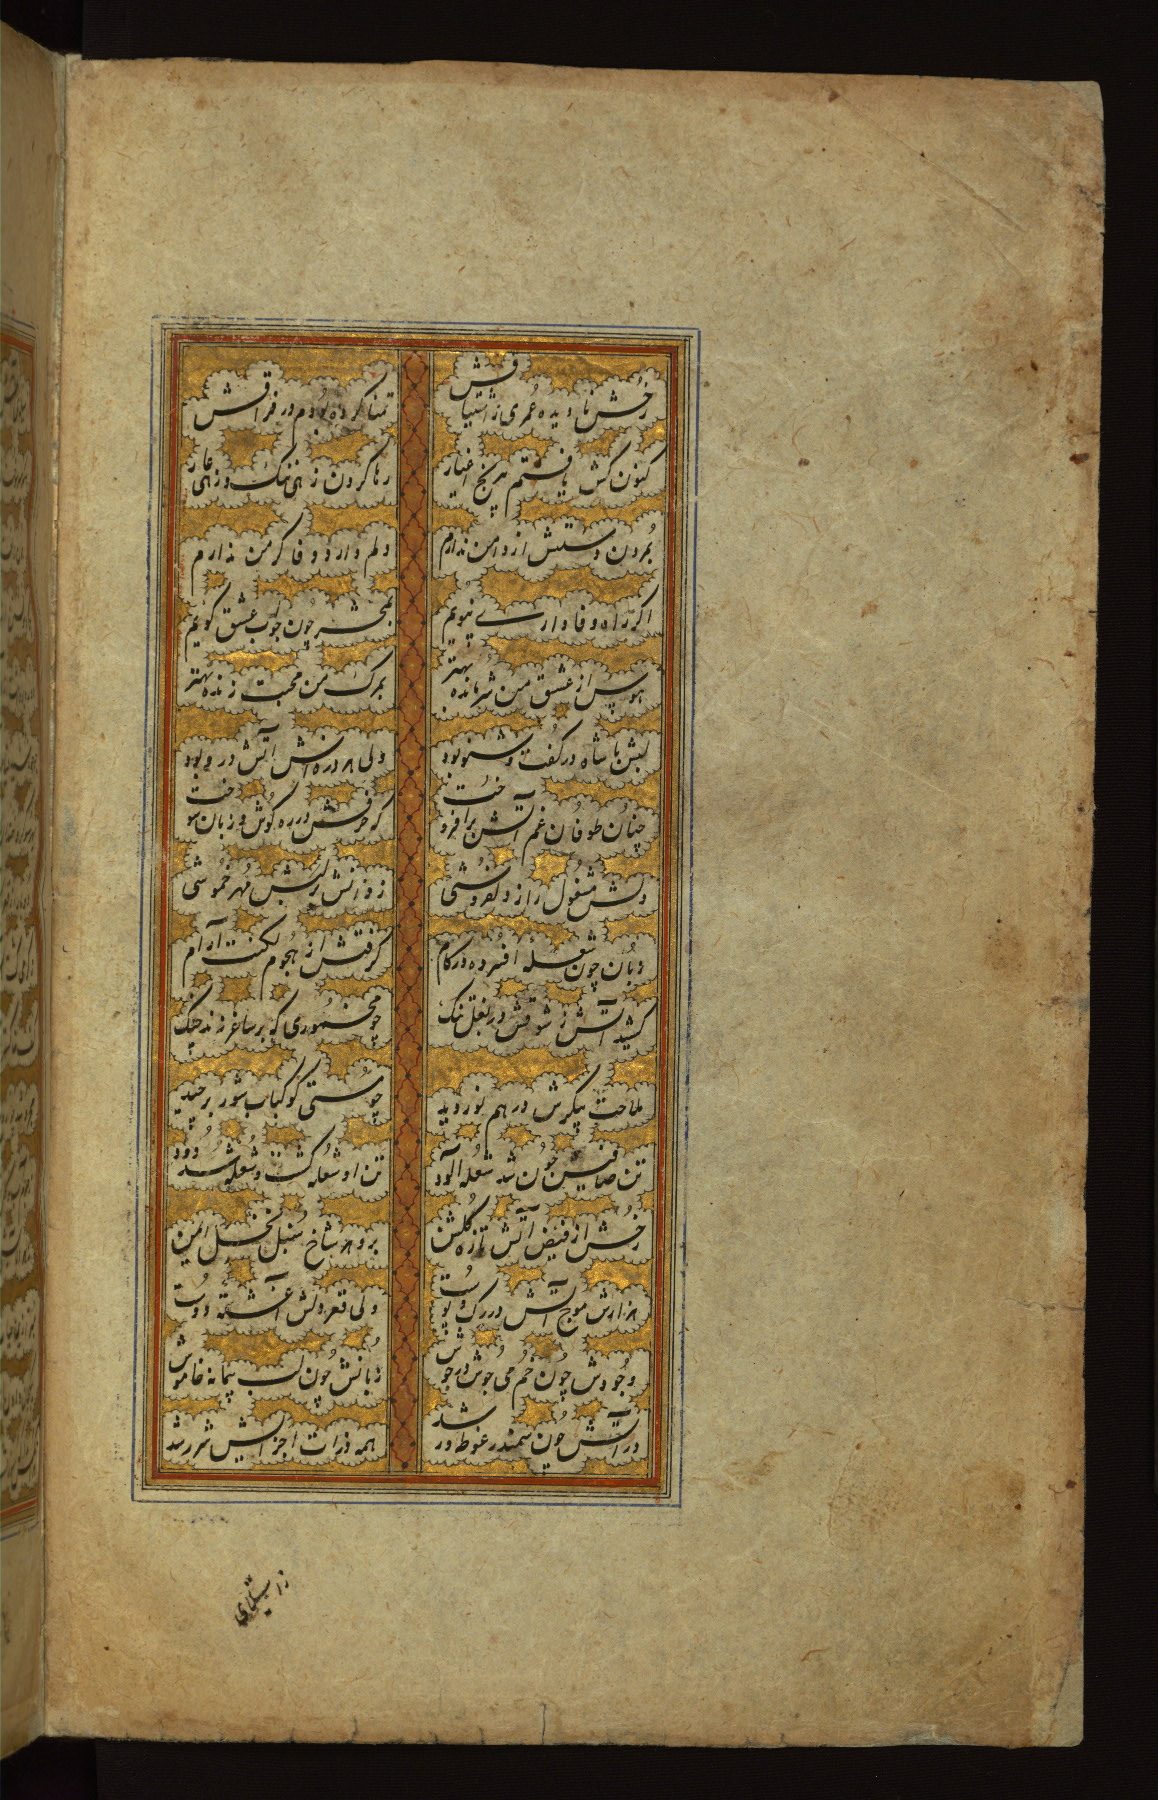 رخش نادیده عمری ز اشتیاقش تمنا کرده بودم در فراقش
کنون کش یافتم بی رنج اغیار رها کردن زهی ننک و زهی عار
بمردن دستش از دامن ندارم دلم دارد وفا کر من ندارم
اکر راه وفاداری نپویم بمحشر چون جواب عشق کویم
هوس از عشق من شرمنده بهتر بمرک من محبت زنده بهتر
لبش با شاه در کفت و شنو بود ولی هر ذره اش آتش درو بود
چنان طوفان غم آتش برافروخت که حرفش در ره کوش و زبان سوخت
دلش مشغول راز دلفروشی زدانش بر لبش مهر خموشی
زبان چون شعله افسرده در کام کرفتش از هجوم لکنت آرام
کشید آتش ز شوقش در بغل تنک چو مخموری که بر ساغر زند چنک
ملاحت پیکرش در هم نوردید چو مستی کو کباب شور برچید
تن صافیش چون شد شعله آلود تن او شعله کشت و شعله شد دود
رخش از فیض آتش تازه کلشن برو هر شاخ سنبل نخل ایمن
هزارش موج آتش در رک و پوست ولی قعر دلش آغشته دوست
وجودش چون خم می جوش در جوش زبانش چون لب پیمانه خاموش
در آتش چون سمندر غوطه ور شد همه ذرات اجزایش شرر شد